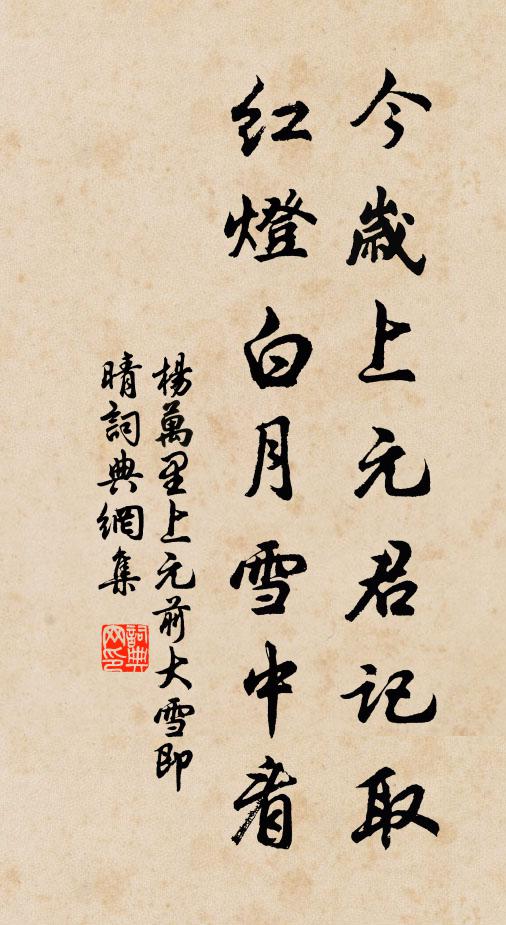 今歲上元君記取
紅燈白月雪中看
楊萬里上元前大雪即
晴詞典網集
詞典網印